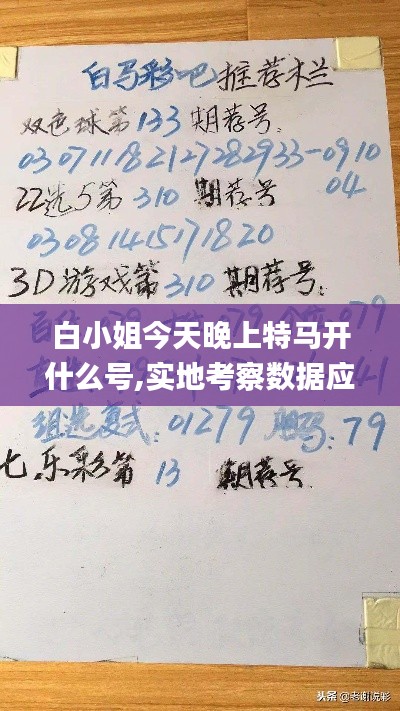 白马彩吧推荐栏
双色球第133期荐号:
03 07 11 18 21 27 28 29 33-09 10
22选5第310期荐号 04
03 08 14 15 17 18 20
3D游戏第310期荐号:
白小姐今天晚上特马开
什么号,实地考察数据应
组选复式:01279 胆码:79
七乐彩第13期荐号
头条 @老谢说彩